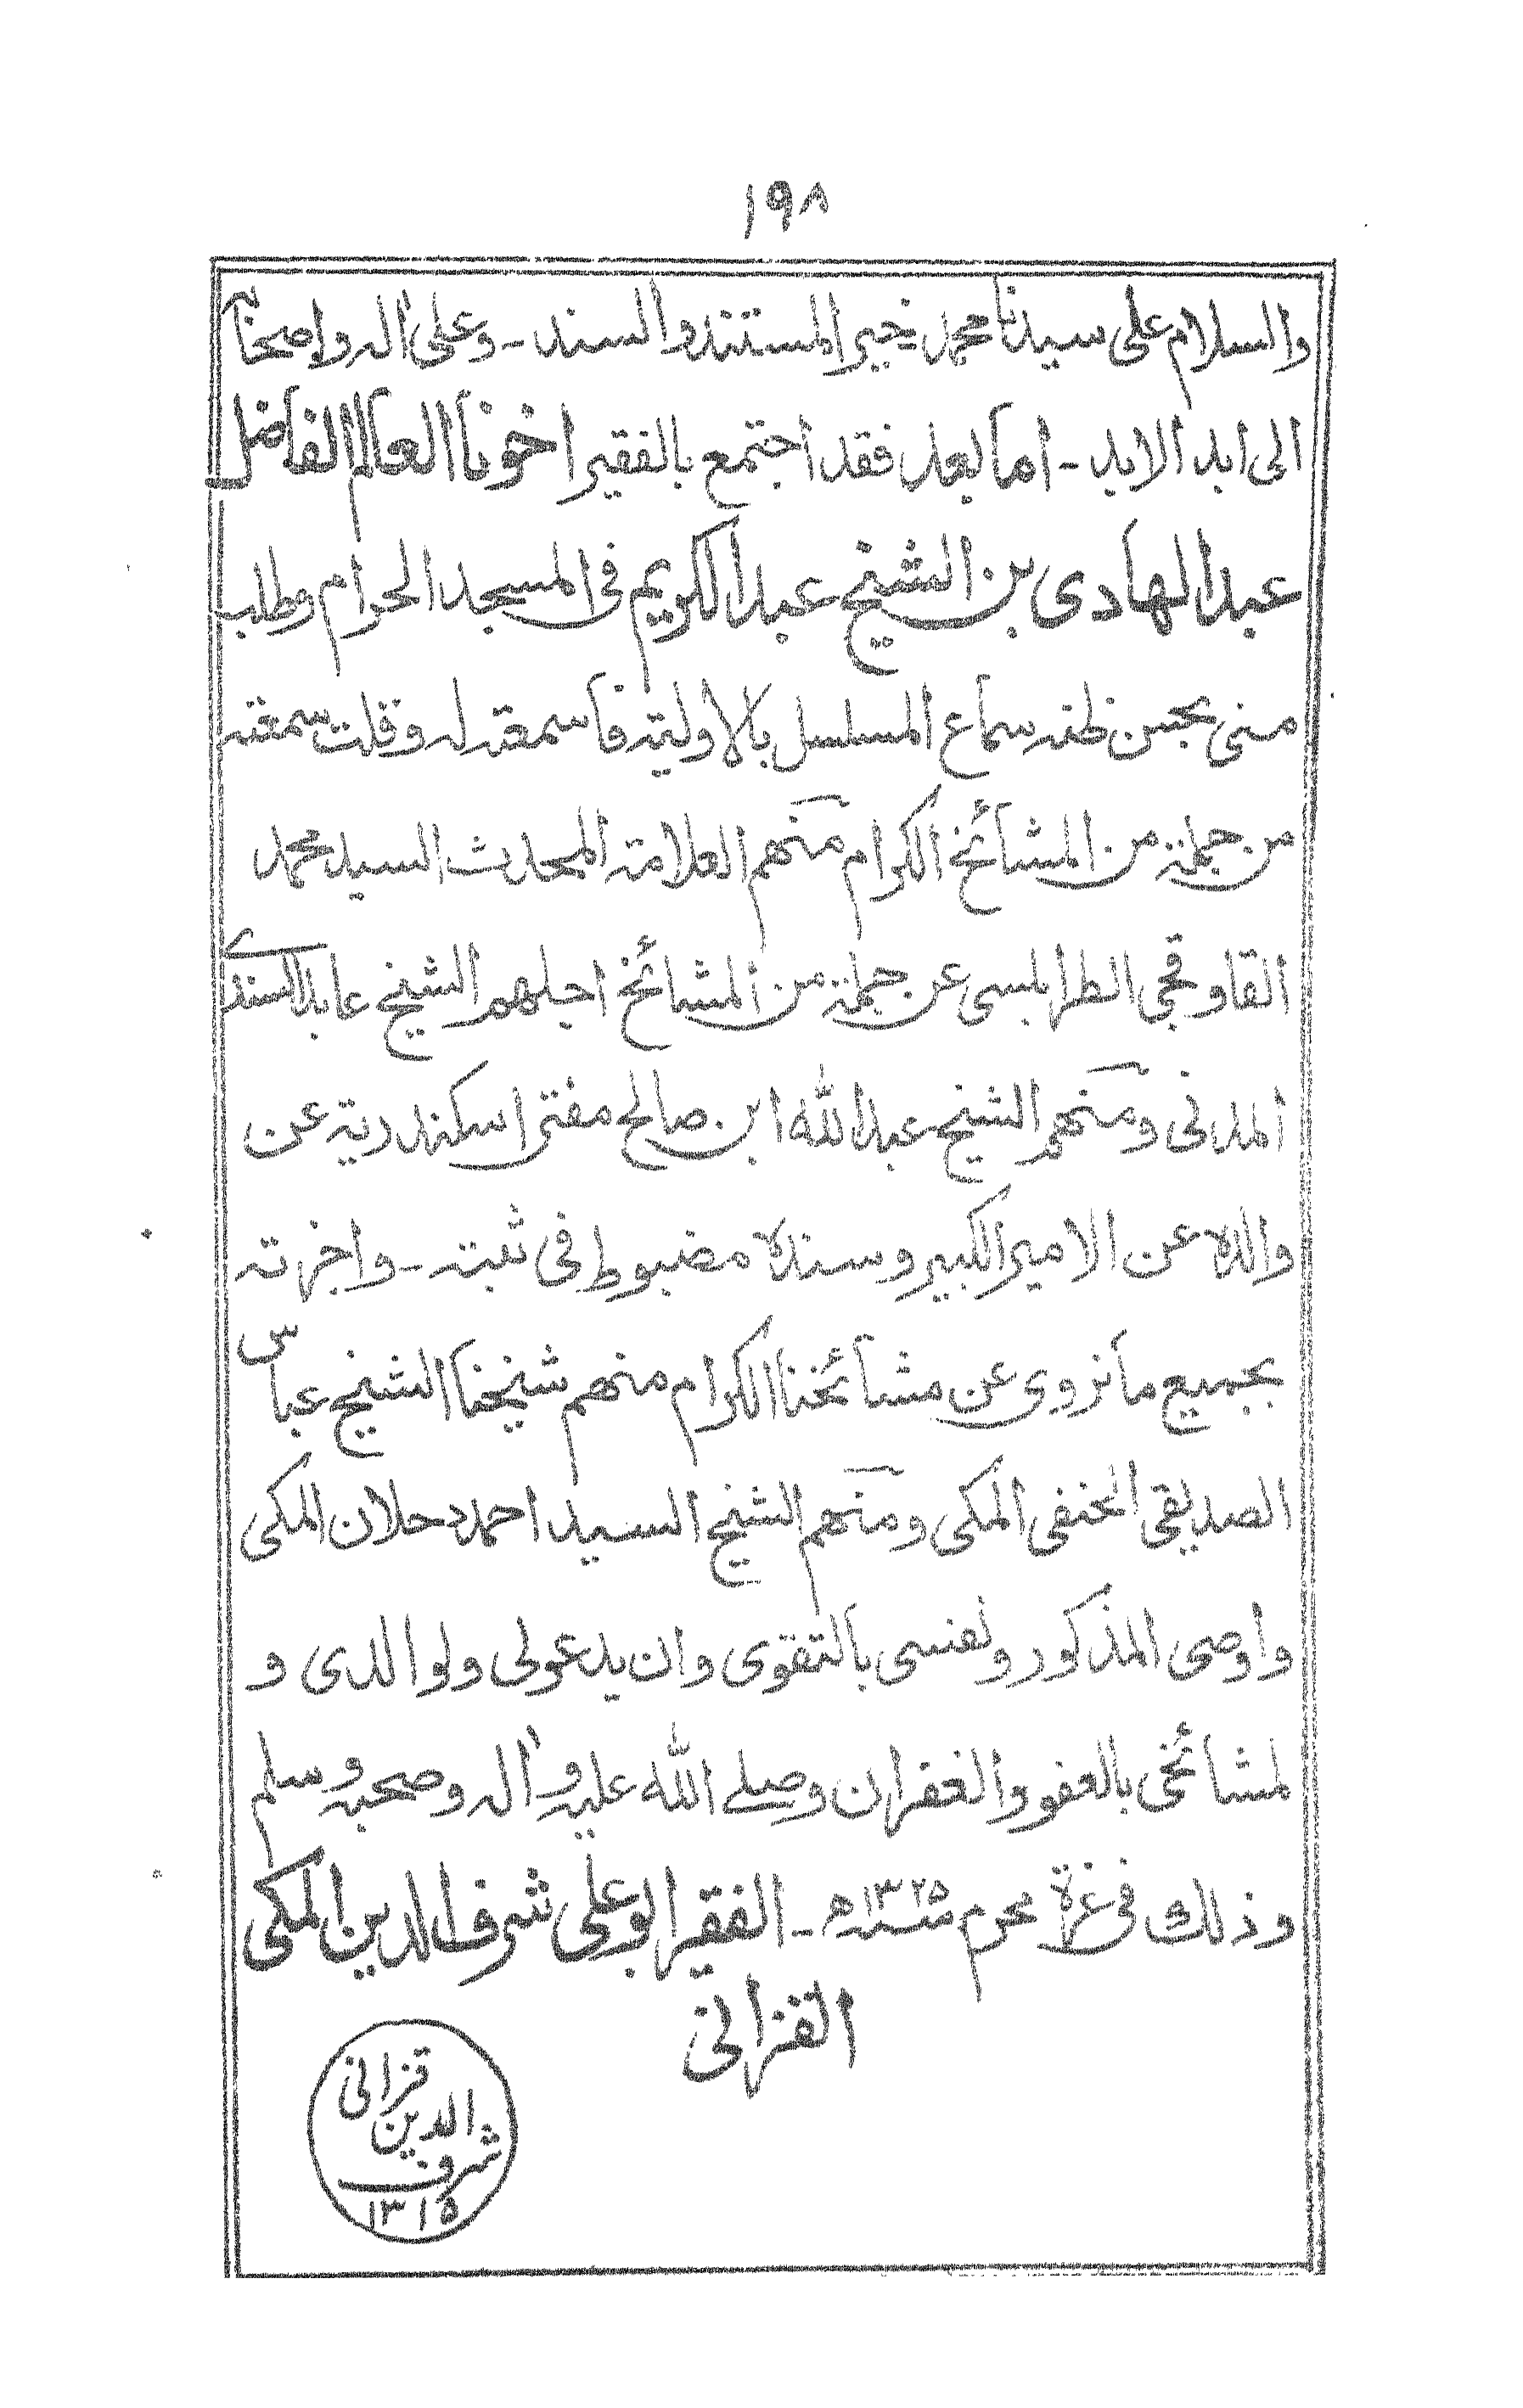 ١٩٨
والسلام على سيدنا محمد خير المستند والسند - وعلى اله واصحابه
الى ابد الابد - اما بعد فقد اجتمع بالفقير اخونا العالم الفاضل
عبد الهادى بن الشيخ عبد الكريم فى المسجد الحرام وطلب
منى بحسن ظنه سماع المسلسل بالاولية فاسمعته له وقلت سمعته
من جملة من المشائخ الكرام منهم العلامة المحدث السيد محمد
القاوقجى الطرابلسى عن جملة من المشائخ اجلهم الشيخ عابد السندى
المدنى ومنهم الشيخ عبد الله ابن صالح مفتى اسكندرية عن
والده عن الامير الكبير وسنده مضبوط فى ثبته - واجزته
بجميع ما نروى عن مشائخنا الكرام منهم شيخنا الشيخ عباس
الصديقى الحنفى المكى ومنهم الشيخ السيد احمد دحلان المكى
واوصى المذكور ونفسى بالتقوى وان يدعو لى ولوالدى و
لمشائخى بالعفو والغفران وصلے الله عليه وآله وصحبه وسلم
وذلك فى غرة محرم سنه ١٣٢٥ھ - الفقير ابو على شرف الدين المكى
القزانى
قزانى
الدين
شرف
١٣١٥